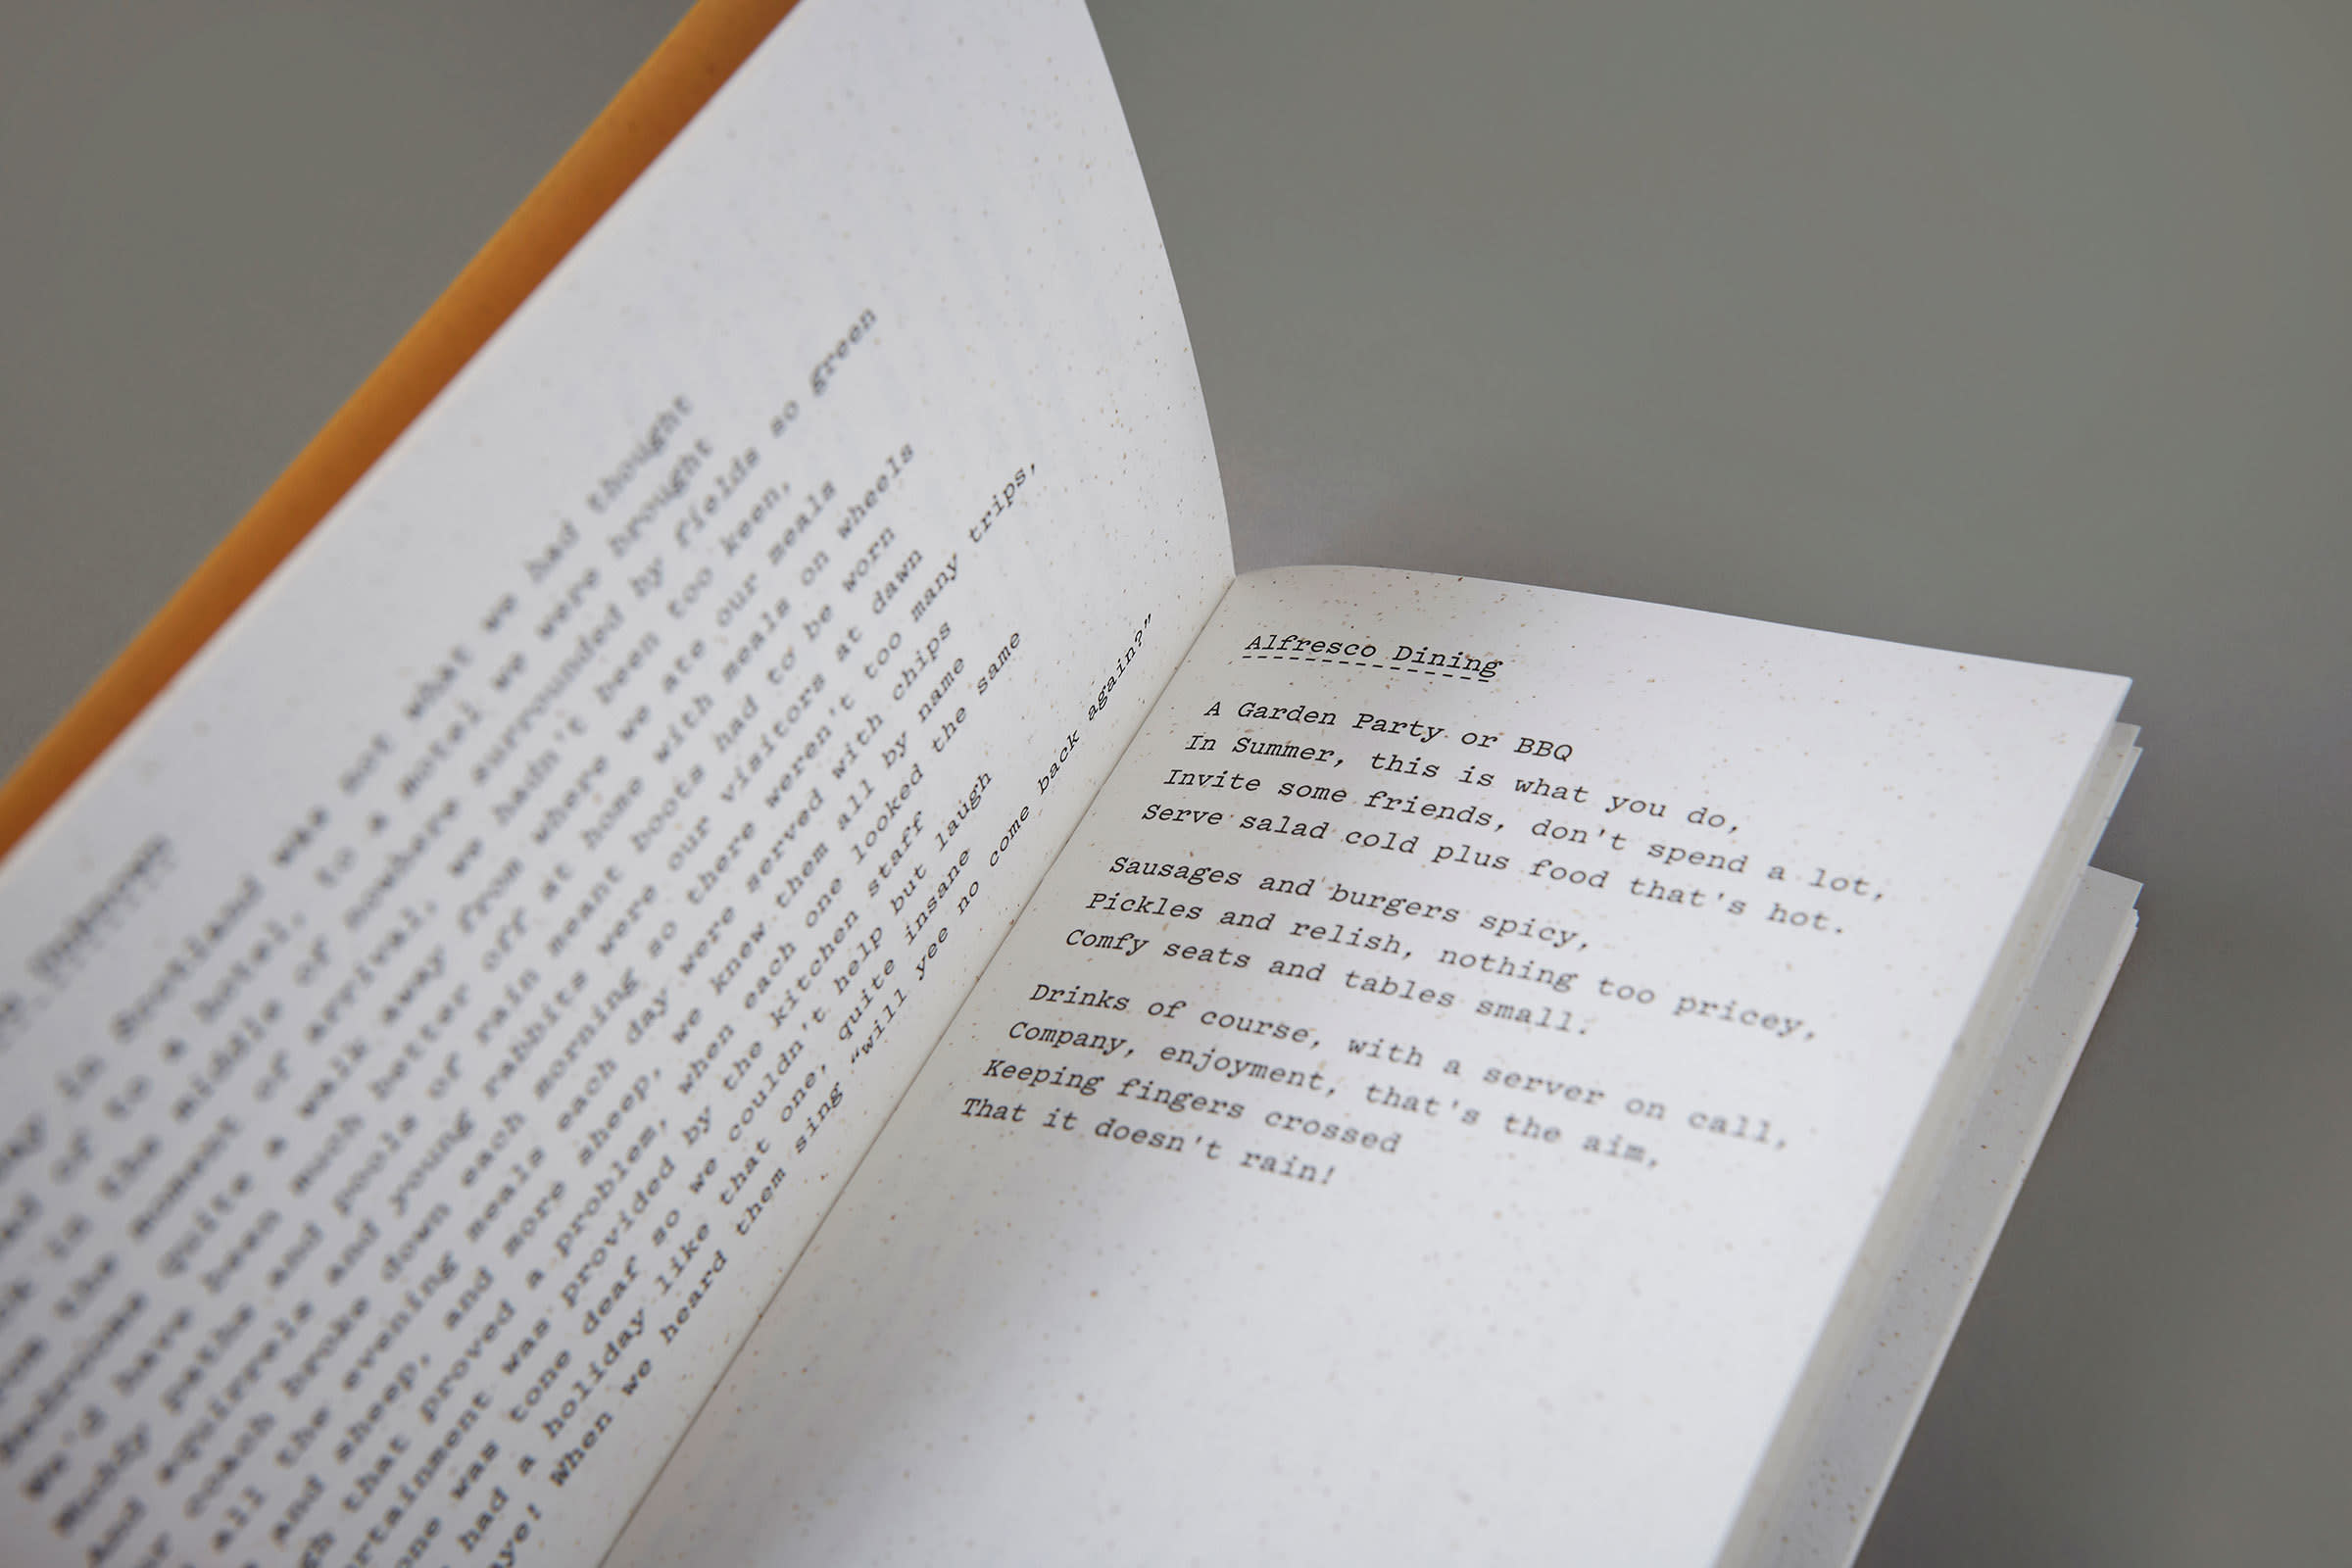 in Scotland was not what we had thought
of to a hotel, to a motel we were brought
in the middle of nowhere surrounded by fields so green
the moment of arrival, we hadn't been too keen,
Bedrooms quite a walk away from where we ate our meals
We'd have been much better off at home with meals on wheels
Muddy paths and pools of rain meant boots had to be worn
And squirrels and young rabbits were our visitors at dawn
coach broke down each morning so there weren't too many trips,
all the evening meals each day were served with chips
and sheep, and more sheep, we knew them all by name
that proved a problem, when each one looked the same
was provided by the kitchen staff
was tone deaf so we couldn't help but laugh
had a holiday like that one, quite insane
When we heard them sing “will yee no come back again?”
Alfresco Dining
A Garden Party or BBQ
In Summer, this is what you do,
Invite some friends, don't spend a lot,
Serve salad cold plus food that's hot.
Sausages and burgers spicy,
Pickles and relish, nothing too pricey,
Comfy seats and tables small.
Drinks of course, with a server on call,
Company, enjoyment, that's the aim,
Keeping fingers crossed
That it doesn't rain!